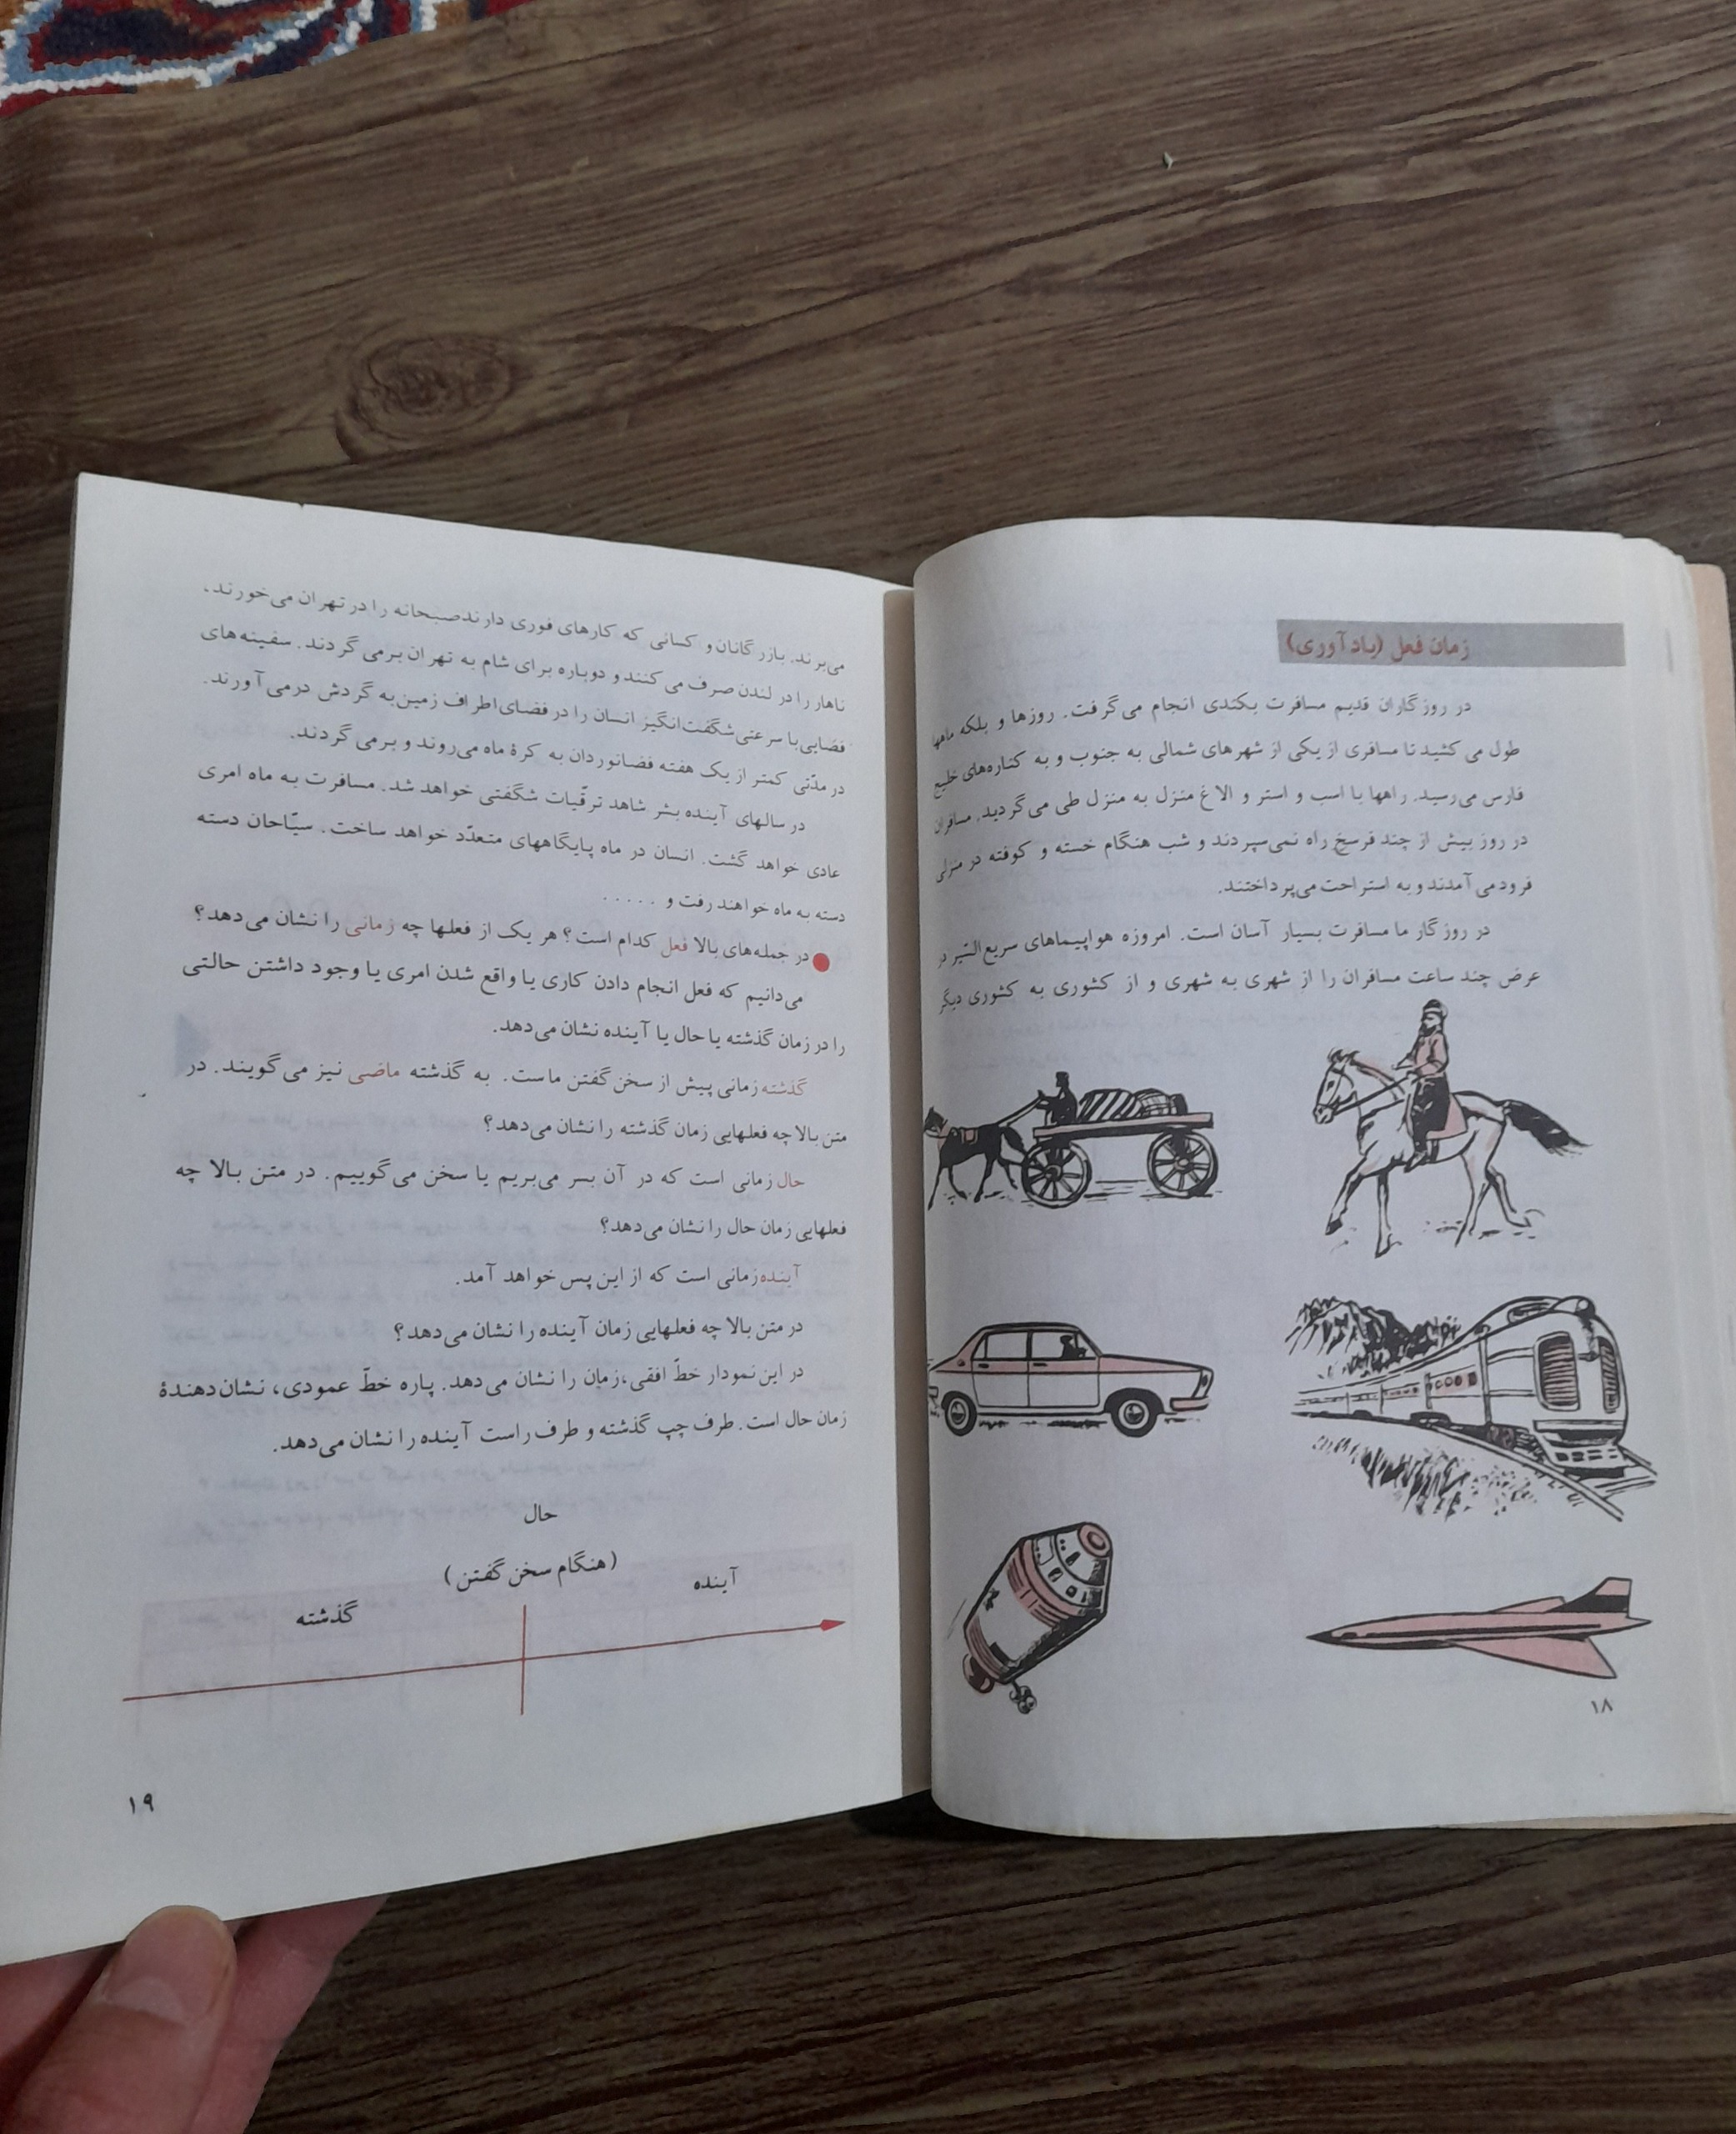 زمان فعل (یادآوری)
در روزگاران قدیم مسافرت بکندی انجام می‌گرفت. روزها و بلکه ماهها
طول می‌کشید تا مسافری از یکی از شهرهای شمالی به جنوب و به کناره‌های خلیج
فارس می‌رسید. راهها با اسب و استر و الاغ منزل به منزل طی می‌گردید. مسافران
در روز بیش از چند فرسخ راه نمی‌سپردند و شب هنگام خسته و کوفته در منزلی
فرود می‌آمدند و به استراحت می‌پرداختند.
در روزگار ما مسافرت بسیار آسان است. امروزه هواپیماهای سریع‌السّیر در
عرض چند ساعت مسافران را از شهری به شهری و از کشوری به کشوری دیگر
۱۸
می‌برند. بازرگانان و کسانی که کارهای فوری دارند صبحانه را در تهران می‌خورند،
ناهار را در لندن صرف می‌کنند و دوباره برای شام به تهران برمی‌گردند. سفینه‌های
فضایی با سرعتی شگفت‌انگیز انسان را در فضای اطراف زمین به گردش درمی‌آورند.
در مدّتی کمتر از یک هفته فضانوردان به کرهٔ ماه می‌روند و برمی‌گردند.
در سالهای آینده بشر شاهد ترقّیات شگفتی خواهد شد. مسافرت به ماه امری
عادی خواهد گشت. انسان در ماه پایگاههای متعدّد خواهد ساخت. سیّاحان دسته
دسته به ماه خواهند رفت و .....
در جمله‌های بالا فعل کدام است؟ هر یک از فعلها چه زمانی را نشان می‌دهد؟
می‌دانیم که فعل انجام دادن کاری یا واقع شدن امری یا وجود داشتن حالتی
را در زمان گذشته یا حال یا آینده نشان می‌دهد.
گذشته زمانی پیش از سخن گفتن ماست. به گذشته ماضی نیز می‌گویند. در
متن بالا چه فعلهایی زمان گذشته را نشان می‌دهد؟
حال زمانی است که در آن بسر می‌بریم یا سخن می‌گوییم. در متن بالا چه
فعلهایی زمان حال را نشان می‌دهد؟
آینده زمانی است که از این پس خواهد آمد.
در متن بالا چه فعلهایی زمان آینده را نشان می‌دهد؟
در این نمودار خطّ افقی، زمان را نشان می‌دهد. پاره خطّ عمودی، نشان‌دهندهٔ
زمان حال است. طرف چپ گذشته و طرف راست آینده را نشان می‌دهد.
حال
(هنگام سخن گفتن)
آینده
گذشته
۱۹